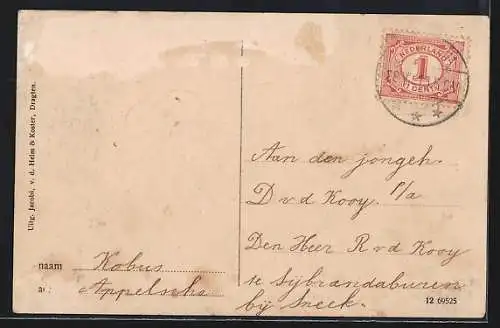 Uitg. Jacobi, v. d. Heim & Koster, Dragten.
NEDERLAND
1
CENT
Aan den jongeh.
D v d Kooy p/a
Den Heer R v d Kooy
te Sijbrandaburen
bij Sneek.
naam Kobus
Appelscha
12 69525